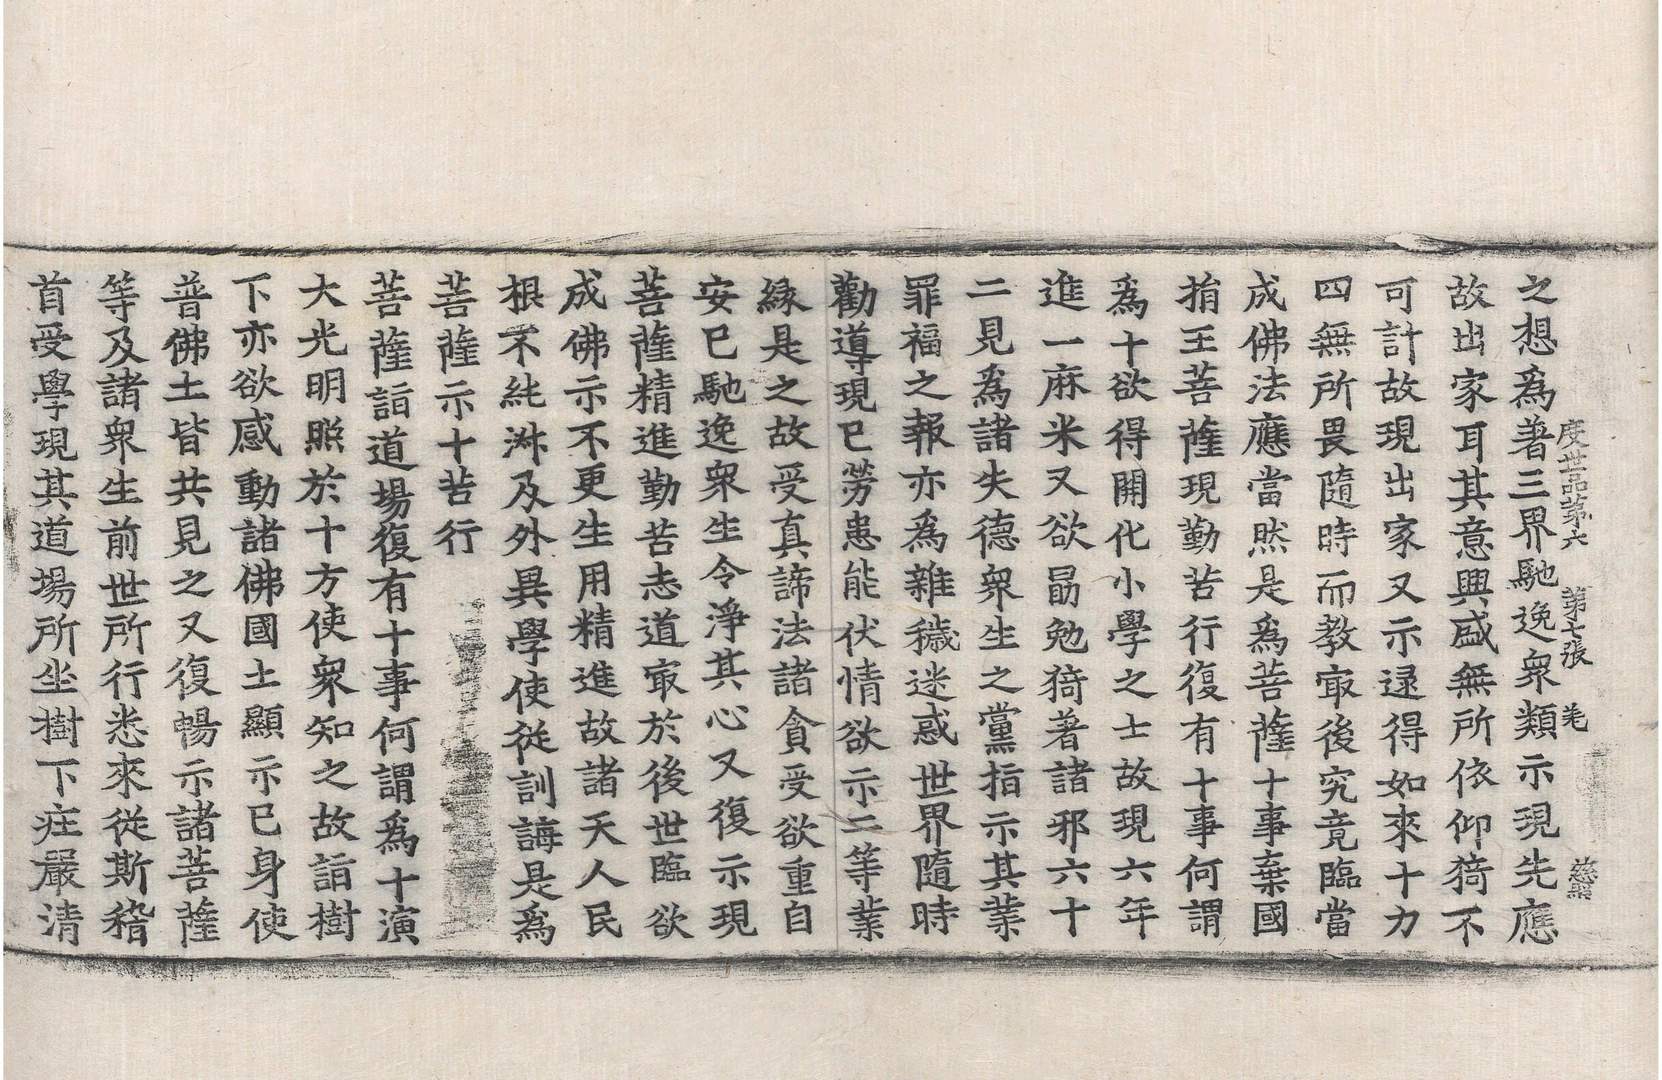 度世品第六 第七張 羌 慈器
之想為著三界馳逸衆類示現先應
故出家耳其意興盛無所依仰猗不
可計故現出家又示逮得如來十力
四無所畏隨時而教㝡後究竟臨當
成佛法應當然是為菩薩十事棄國
捐王菩薩現勤苦行復有十事何謂
為十欲得開化小學之士故現六年
進一麻米又欲勗勉猗著諸邪六十
二見為諸失德衆生之黨指示其業
罪福之報亦為雜穢迷惑世界隨時
勸導現已勞患能伏情欲示二等業
緣是之故受真諦法諸貪受欲重自
安已馳逸衆生令淨其心又復示現
菩薩精進勤苦志道㝡於後世臨欲
成佛示不更生用精進故諸天人民
根不純淑及外異學使從訓誨是為
菩薩示十苦行
菩薩詣道場復有十事何謂為十演
大光明照於十方使衆知之故詣樹
下亦欲感動諸佛國土顯示已身使
普佛土皆共見之又復暢示諸菩薩
等及諸衆生前世所行悉來從斯稽
首受學現其道場所坐樹下莊嚴清